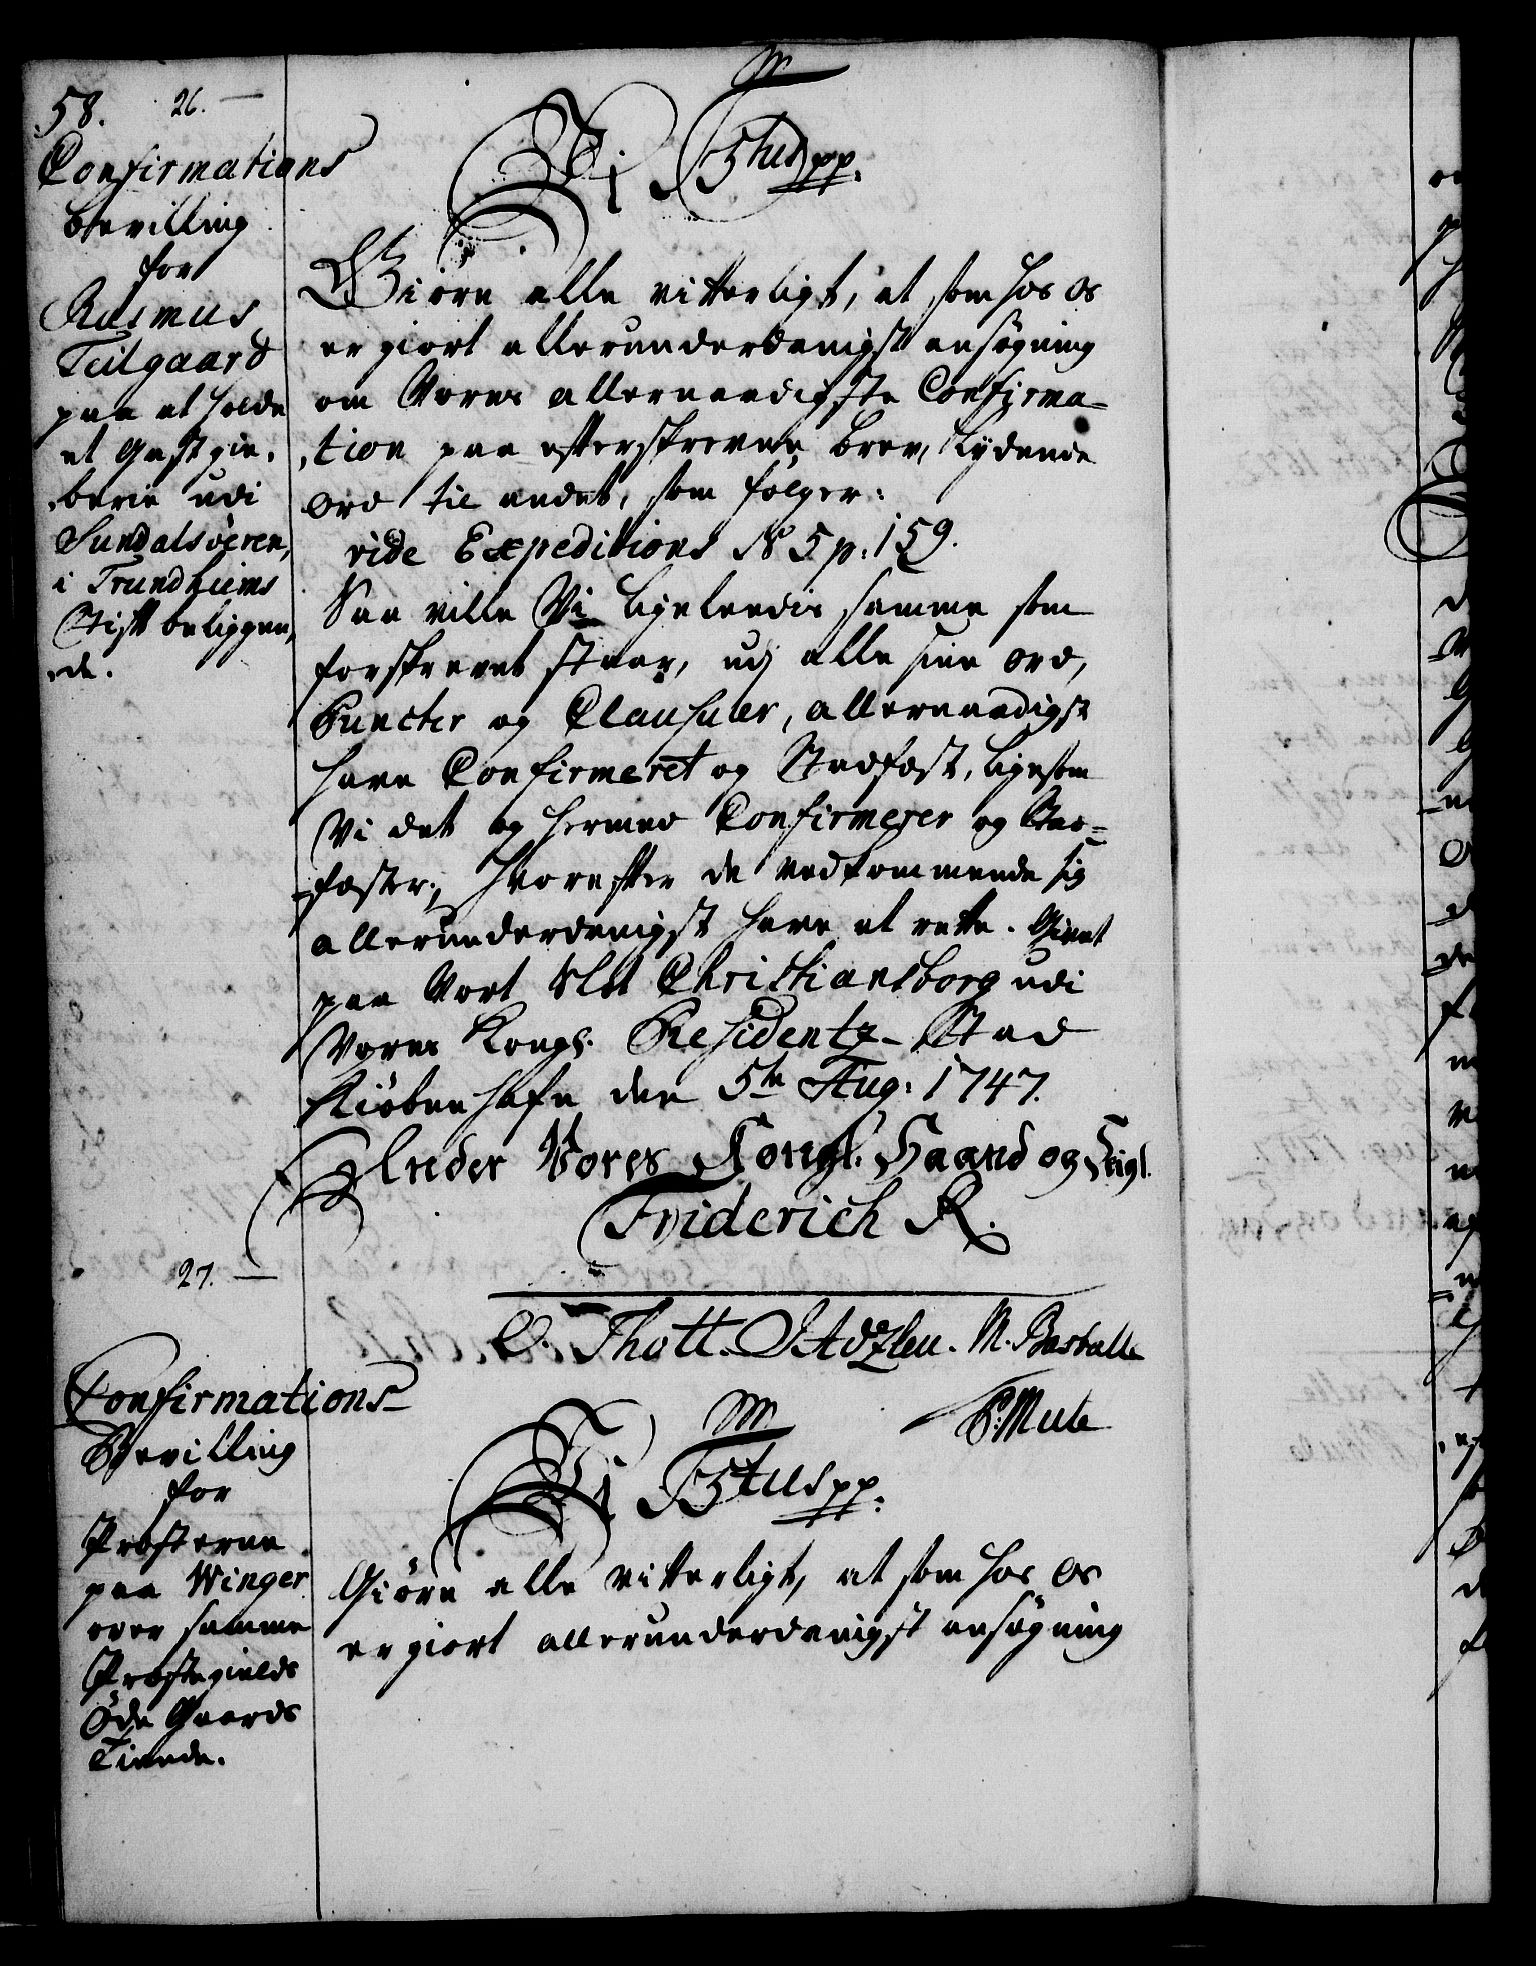 58. 26. —
Confirmations
bevilling
for
Rasmus
Teilgaard
paa at holde
et Gæstgie-
berie udi
Sundalsöeren,
i Trundheims
Stift beliggen-
de.
Vi Ftus pp.
Giöre alle vitterligt, at som hos os
er giort allerunderdanigst ansøgning
om Vores allernaadigste Confirma-
tion paa efterskrevne brev, Lydende
ord til andet, som følger:
vide Expeditions N 5 p: 159.
Saa ville Vi ligeledis samme som
forskrevet staar, udi alle sine ord,
Puncter og Clausuler, allernaadigst
have Confirmeret og Stadfæst, ligesom
Vi det og hermed Confirmerer og Stad-
fæster; Hvorefter de vedkommende sig
allerunderdanigst have at rette. Givet
paa Vort Slot Christiansborg udi
Vores Kongl. Residentz-Stad
Kiöbenhafn den 5te Aug: 1747.
Under Vores Kongl: Haand og Seigl.
Friderich R.
O. Thott. M. Basballe
P. Mule
27. —
Confirmations-
Bevilling
for
Præsterne
paa Winger
over samme
Præstegields
Öde Gaards
Tiende.
Vi Ftus pp.
Giöre alle vitterligt, at som hos os
er giort allerunderdanigst ansøgning